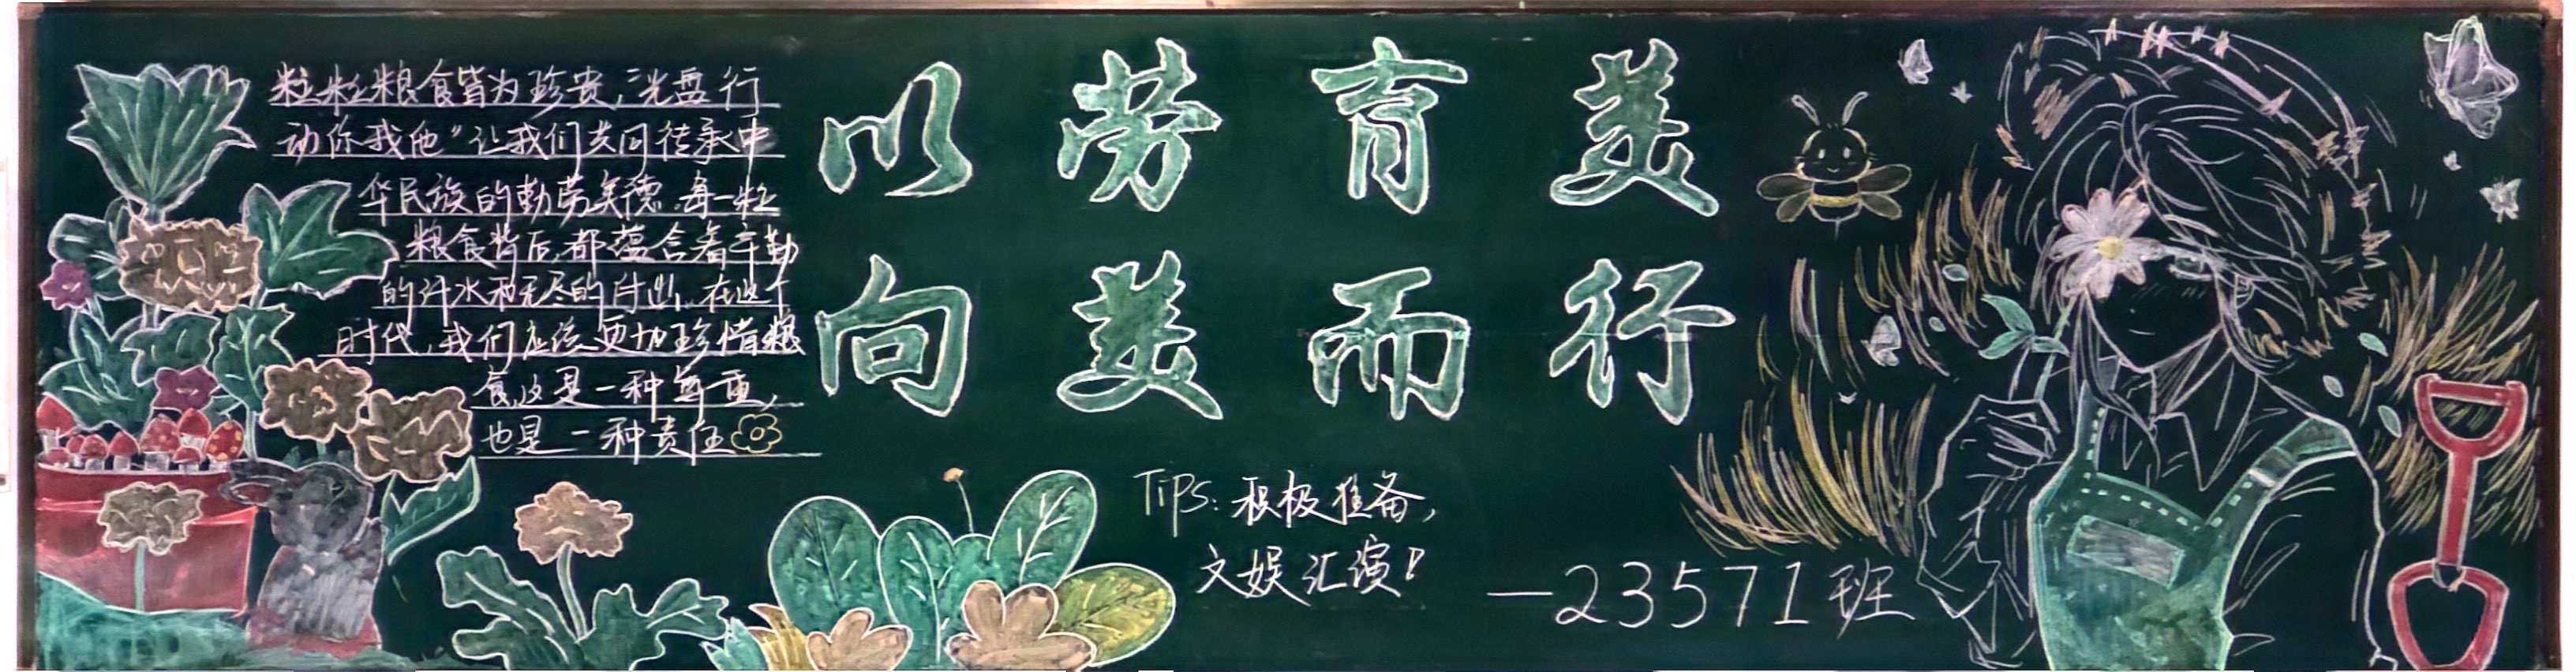 粒粒粮食皆为珍贵,“光盘行
动你我他”让我们共同传承中
华民族的勤劳美德.每一粒
粮食背后,都蕴含着辛勤
的汗水和无尽的付出.在这个
时代,我们应该更加珍惜粮
食,这是一种尊重,
也是一种责任
以劳育美
向美而行
Tips:积极准备,
文娱汇演!
—23571班